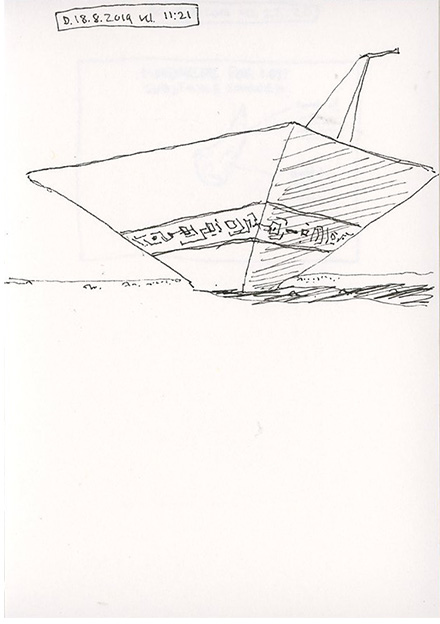 D.18.8.2019 kl. 11:21